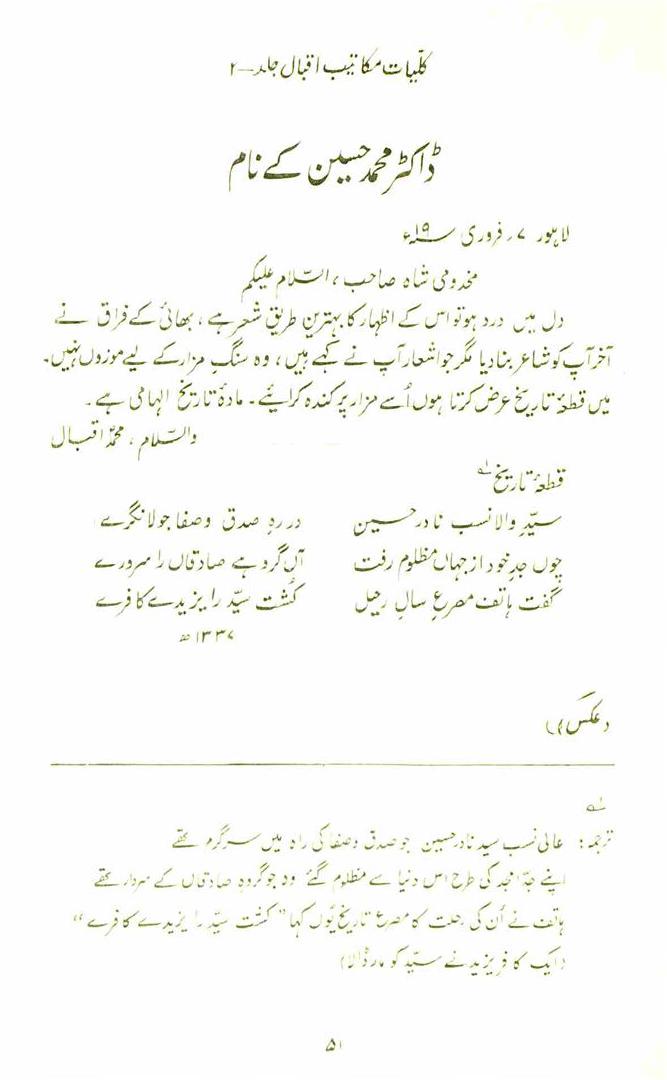 کلّیات مکاتیب اقبال جلد-۲
ڈاکٹر محمد حسین کے نام
لاہور ۷ر فروری ۱۹ء
مخدومی شاہ صاحب، السّلام علیکم
دل میں درد ہو تو اس کے اظہار کا بہترین طریق شعر ہے، بھائی کے فراق نے
آخر آپ کو شاعر بنا دیا مگر جو اشعار آپ نے کہے ہیں، وہ سنگِ مزار کے لیے موزوں نہیں۔
میں قطعۂ تاریخ عرض کرتا ہوں اُسے مزار پر کندہ کرائیے۔ مادۂ تاریخ الہامی ہے۔
والسّلام، محمدؐ اقبال
قطعۂ تاریخ لہ
سیّدِ والا نسب نادر حسین در رہِ صدق و صفا جولانگرے
چوں جدِ خود از جہاں مظلوم رفت آں گروہے صادقاں را سرورے
گفت ہاتف مصرعِ سالِ رحیل کُشت سیّد را یزیدے کافرے
۱۳۳۷ھ
(عکس)
لہ
ترجمہ: عالی نسب سید نادر حسین جو صدق و صفا کی راہ میں سرگرم تھے
اپنے جدّ امجد کی طرح اس دنیا سے مظلوم گئے وہ جو گروہِ صادقاں کے سردار تھے
ہاتف نے اُن کی رحلت کا مصرع تاریخ یُوں کہا "کشت سیّد را یزیدے کافرے"
(ایک کافر یزید نے سیّد کو مار ڈالا)
۵۱